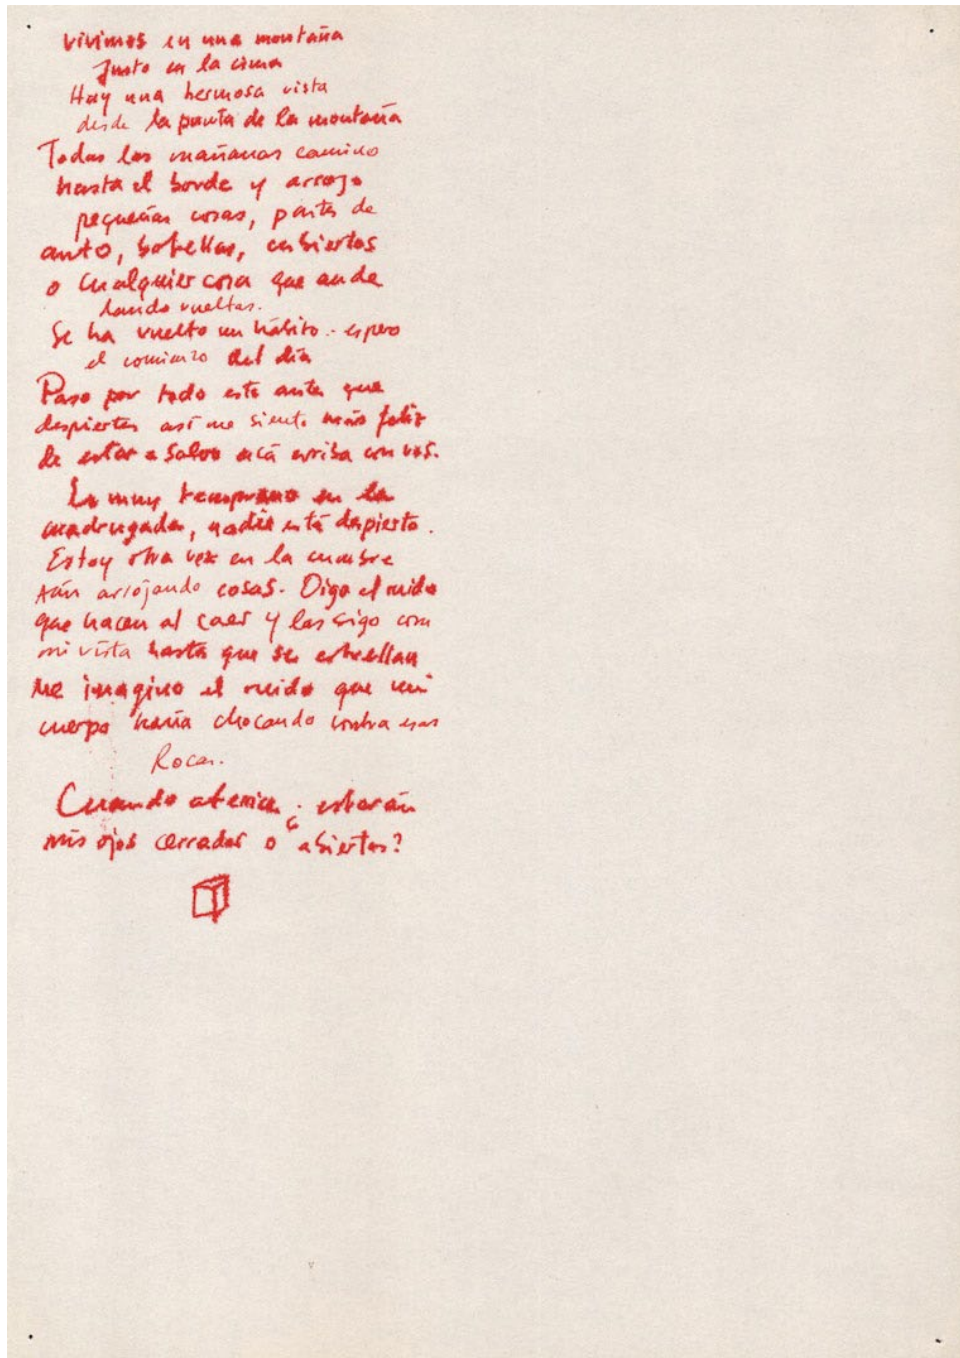 vivimos en una montaña
Justo en la cima
Hay una hermosa vista
desde la punta de la montaña
Todas las mañanas camino
hasta el borde y arrojo
pequeñas cosas, partes de
auto, botellas, cubiertos
o cualquier cosa que ande
dando vueltas.
Se ha vuelto un hábito. espero
el comienzo del día
Paso por todo esto antes que
despiertes así me siento más feliz
de estar a salvo acá arriba con vos.
Es muy temprano en la
madrugada, nadie está despierto.
Estoy otra vez en la cumbre
Aún arrojando cosas. Oigo el ruido
que hacen al caer y las sigo con
mi vista hasta que se estrellan
Me imagino el ruido que mi
cuerpo haría chocando contra esas
Rocas.
Cuando aterrice, ¿ estarán
mis ojos cerrados o abiertos?